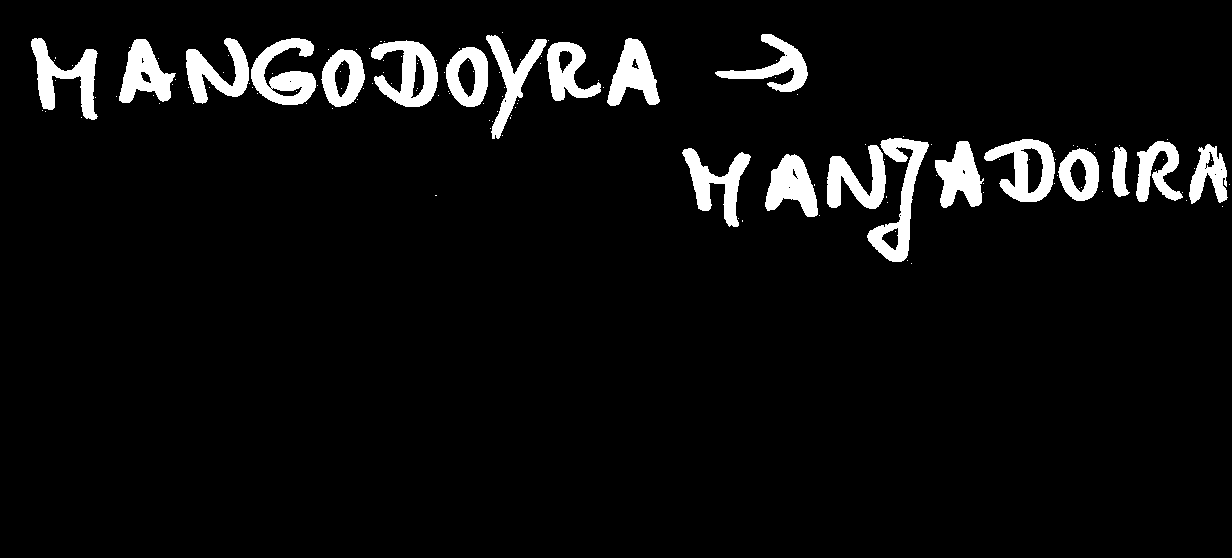 MANGODOYRA →
MANJADOIRA